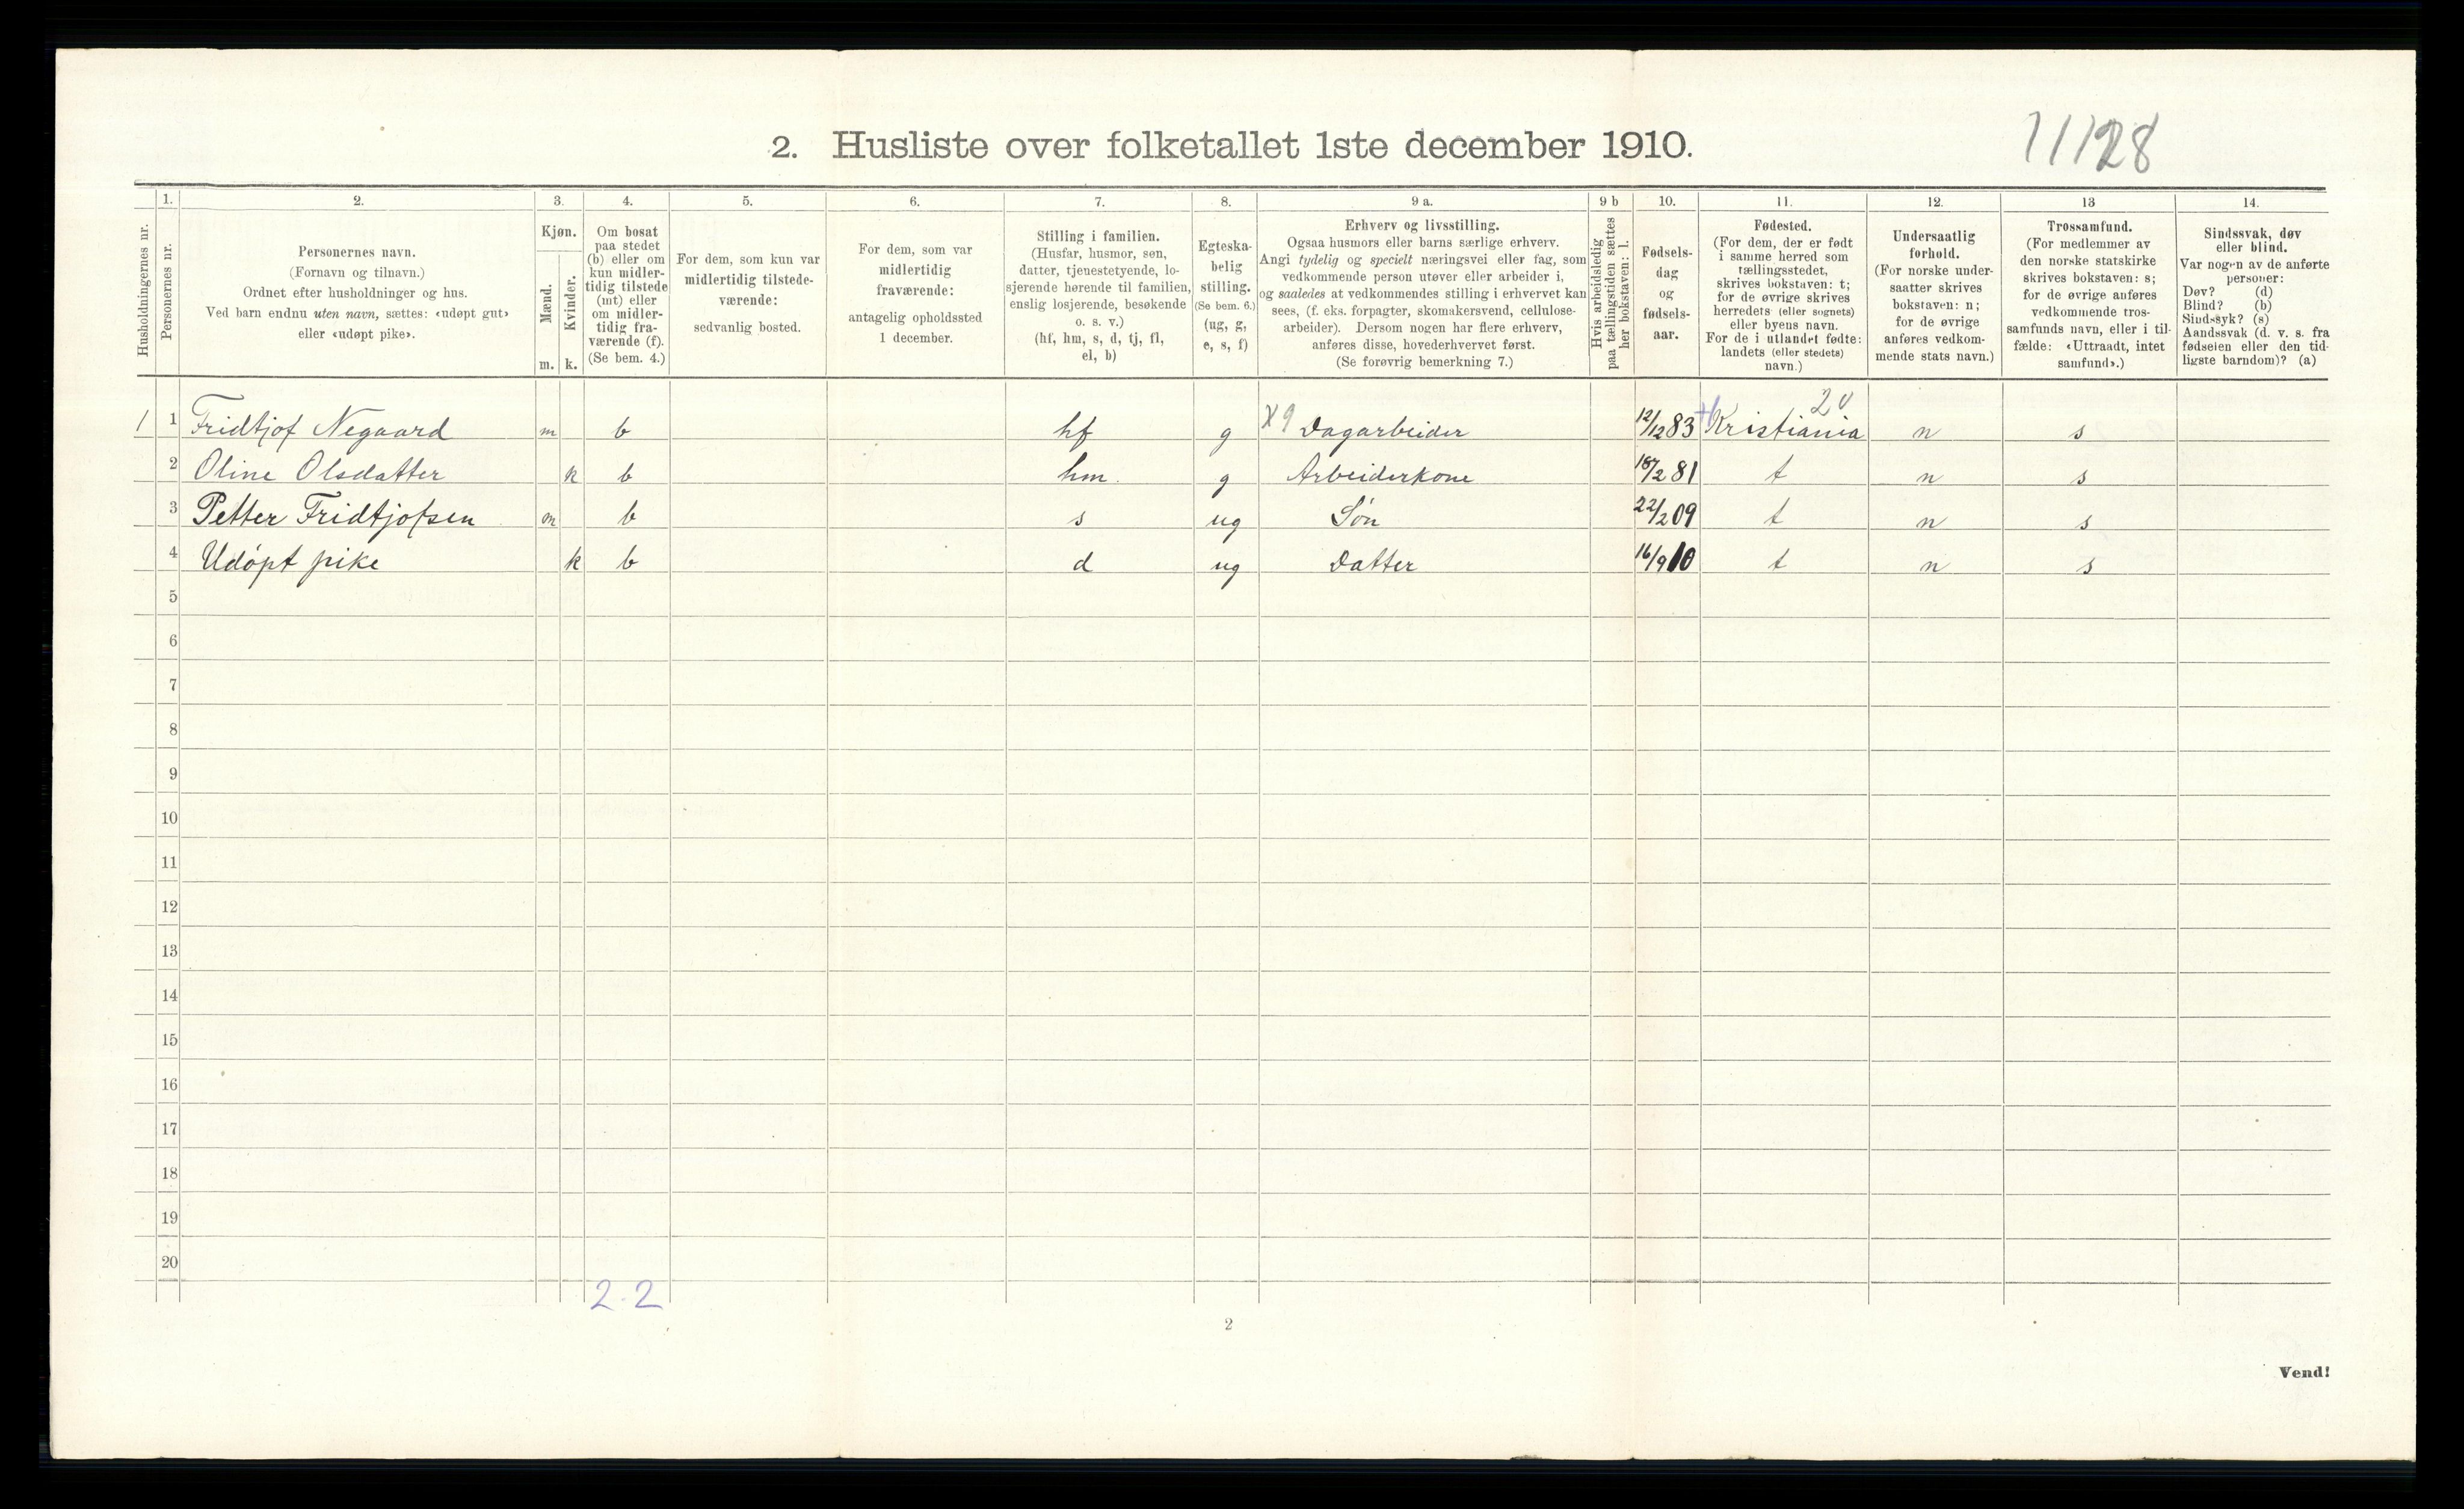 2. Husliste over folketallet 1ste december 1910.
11128
Husholdningernes nr.
1.
Personernes nr.
2.
Personernes navn.
(Fornavn og tilnavn.)
Ordnet efter husholdninger og hus.
Ved barn endnu uten navn, sættes: «udøpt gut»
eller «udøpt pike».
3.
Kjøn.
Mænd.
Kvinder.
m. k.
4.
Om bosat
paa stedet
(b) eller om
kun midler-
tidig tilstede
(mt) eller
om midler-
tidig fra-
værende (f).
(Se bem. 4.)
5.
For dem, som kun var
midlertidig tilstede-
værende:
sedvanlig bosted.
6.
For dem, som var
midlertidig
fraværende:
antagelig opholdssted
1 december.
7.
Stilling i familien.
(Husfar, husmor, søn,
datter, tjenestetyende, lo-
sjerende hørende til familien,
enslig losjerende, besøkende
o. s. v.)
(hf, hm, s, d, tj, fl,
el, b)
8.
Egteska-
belig
stilling.
(Se bem. 6.)
(ug, g,
e, s, f)
9 a.
Erhverv og livsstilling.
Ogsaa husmors eller barns særlige erhverv.
Angi tydelig og specielt næringsvei eller fag, som
vedkommende person utøver eller arbeider i,
og saaledes at vedkommendes stilling i erhvervet kan
sees, (f. eks. forpagter, skomakersvend, cellulose-
arbeider). Dersom nogen har flere erhverv,
anføres disse, hovederhvervet først.
(Se forøvrig bemerkning 7.)
9 b
Hvis arbeidsledig
paa tællingstiden sættes
her bokstaven: l.
10.
Fødsels-
dag
og
fødsels-
aar.
11.
Fødested.
(For dem, der er født
i samme herred som
tællingsstedet,
skrives bokstaven: t;
for de øvrige skrives
herredets (eller sognets)
eller byens navn.
For de i utlandet fødte:
landets (eller stedets)
navn.)
12.
Undersaatlig
forhold.
(For norske under-
saatter skrives
bokstaven: n;
for de øvrige
anføres vedkom-
mende stats navn.)
13
Trossamfund.
(For medlemmer av
den norske statskirke
skrives bokstaven: s;
for de øvrige anføres
vedkommende tros-
samfunds navn, eller i til-
fælde: «Uttraadt, intet
samfund».)
14.
Sindssvak, døv
eller blind.
Var nogen av de anførte
personer:
Døv? (d)
Blind? (b)
Sindssyk? (s)
Aandssvak (d. v. s. fra
fødselen eller den tid-
ligste barndom)? (a)
20
1 1 Fridtjof Negaard m b hf g X9 Dagarbeider 12/12 83 Kristiania n s
2 Oline Olsdatter k b hm. g Arbeiderkone 18/2 81 t n s
3 Petter Fridtjofsen m b s ug Søn 22/2 09 t n s
4 Udøpt pike k b d ug Datter 16/9 10 t n s
5
6
7
8
9
10
11
12
13
14
15
16
17
18
19
20
2-2
2
Vend!